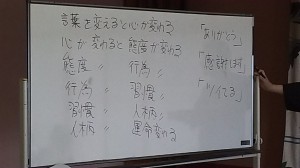 言葉を変えると心が変わる
心が変わると態度が変わる
態度 〃 行為 〃
行為 〃 習慣 〃
習慣 〃 人柄 〃
人柄 〃 運命変わる
「ありがとう」
「感謝します」
「ツイてる」